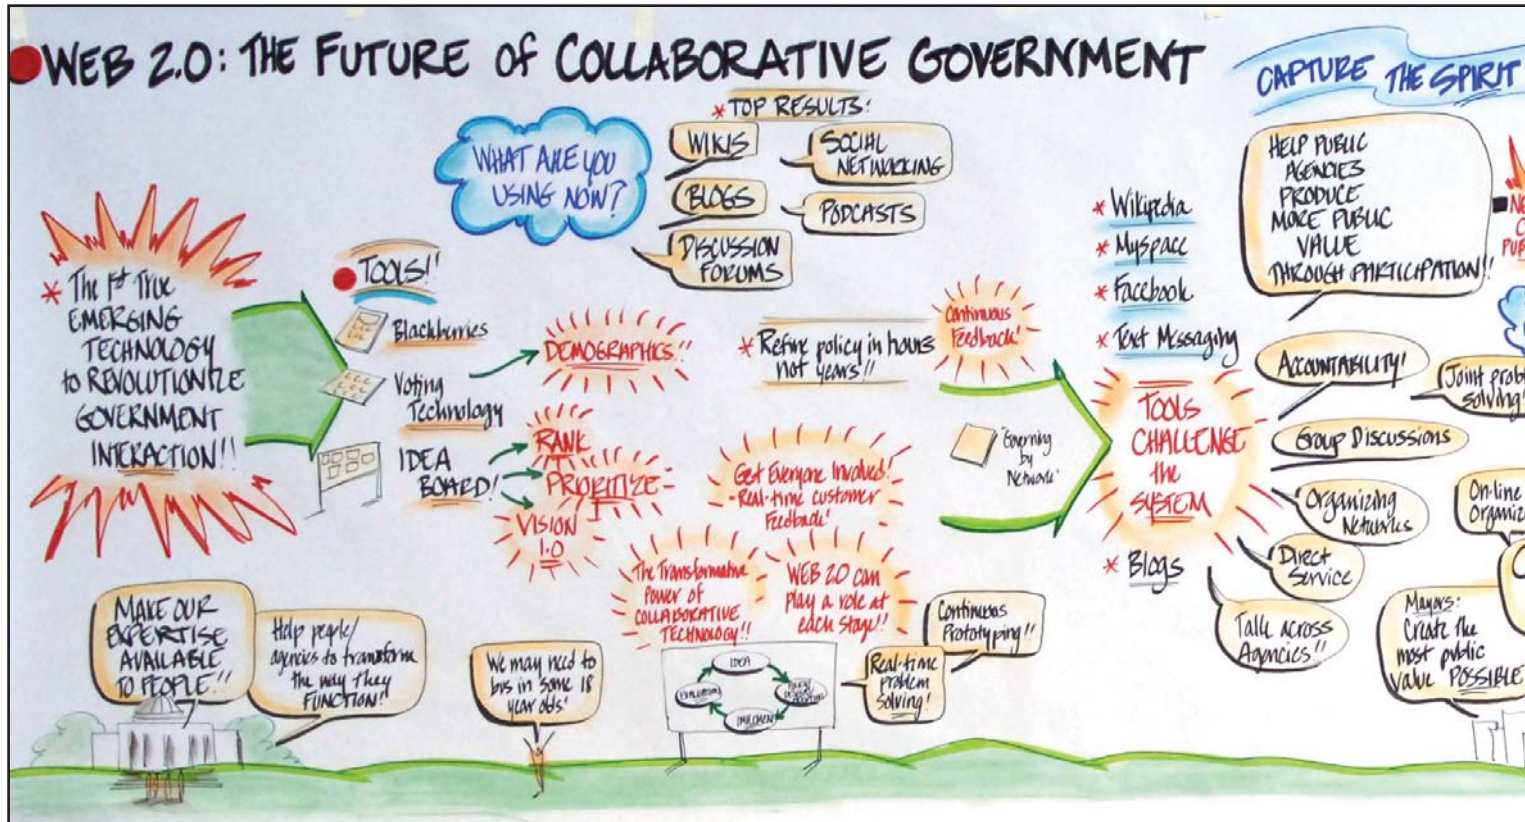 WEB 2.0: THE FUTURE of COLLABORATIVE GOVERNMENT
CAPTURE THE SPIRIT
* TOP RESULTS!
WHAT ARE YOU
USING NOW?
WIKIS
SOCIAL
NETWORKING
BLOGS
PODCASTS
DISCUSSION
FORUMS
* The 1st True
EMERGING
TECHNOLOGY
to REVOLUTIONIZE
GOVERNMENT
INTERACTION!!
TOOLS!!
Blackberries
Voting
Technology
IDEA
BOARD!
DEMOGRAPHICS!!
RANK
PRIORITIZE
VISION
1.0
* Refine policy in hours
not years!!
Continuous
Feedback!
Get Everyone Involved!
-Real-time customer
Feedback!
The Transformative
Power of
COLLABORATIVE
TECHNOLOGY!!
WEB 2.0 can
play a role at
each stage!!
"Governing
by
Network"
* Wikipedia
* Myspace
* Facebook
* Text Messaging
TOOLS
CHALLENGE
the
SYSTEM
* Blogs
HELP PUBLIC
AGENCIES
PRODUCE
MORE PUBLIC
VALUE
THROUGH PARTICIPATION!!
ACCOUNTABILITY!
Joint
solving!
Group Discussions
Organizing
Networks
On-line
Direct
Service
Talk across
Agencies!!
Mayors:
Create the
most public
value POSSIBLE
MAKE OUR
EXPERTISE
AVAILABLE
TO PEOPLE!!
Help people/
agencies to transform
the way they
FUNCTION!
We may need to
bus in some 18
year olds!
IDEA
EVALUATION
IMPLEMENT
Real-time
problem
solving!
Continuous
Prototyping!!